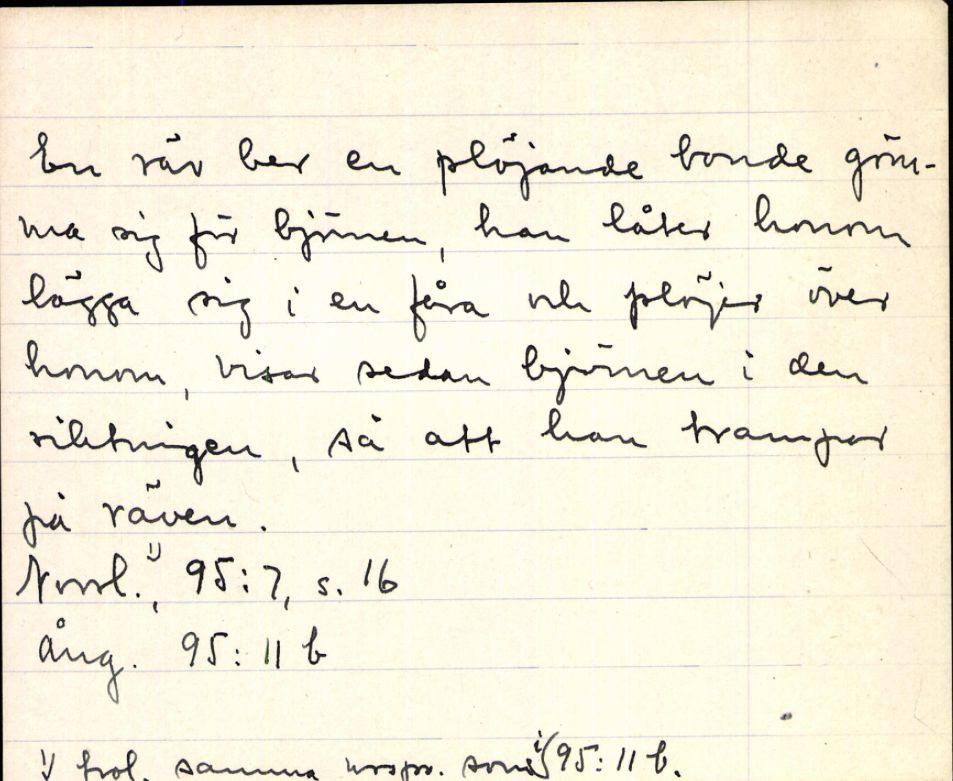 En räv ber en plöjande bonde göm-
ma sig för björnen, han låter honom
lägga sig i en fåra och plöjer över
honom, visar sedan björnen i den
riktningen, så att han trampar
på räven.
Norrl.¹⁾, 95:7, s. 16
Ång. 95: 11 b
1) trol. samma urspr. som i 95: 11 b.